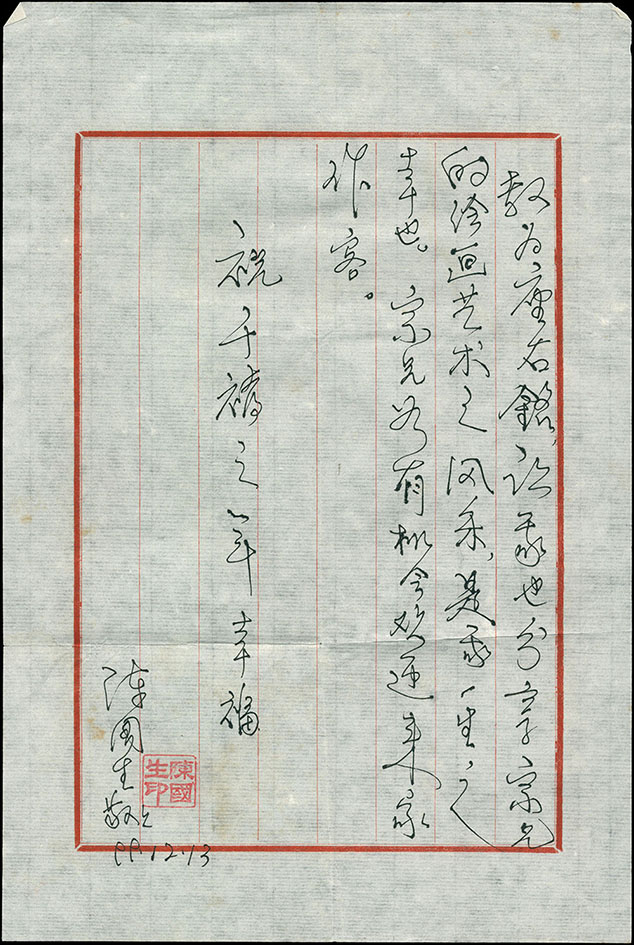 教为座右銘，让我也分享宗兄
的绘画艺术之风采，是我一生之
幸也。宗兄若有机会欢迎来家
作客。
祝千禧之年幸福
陈國生敬上
陳國生印
99.12.13